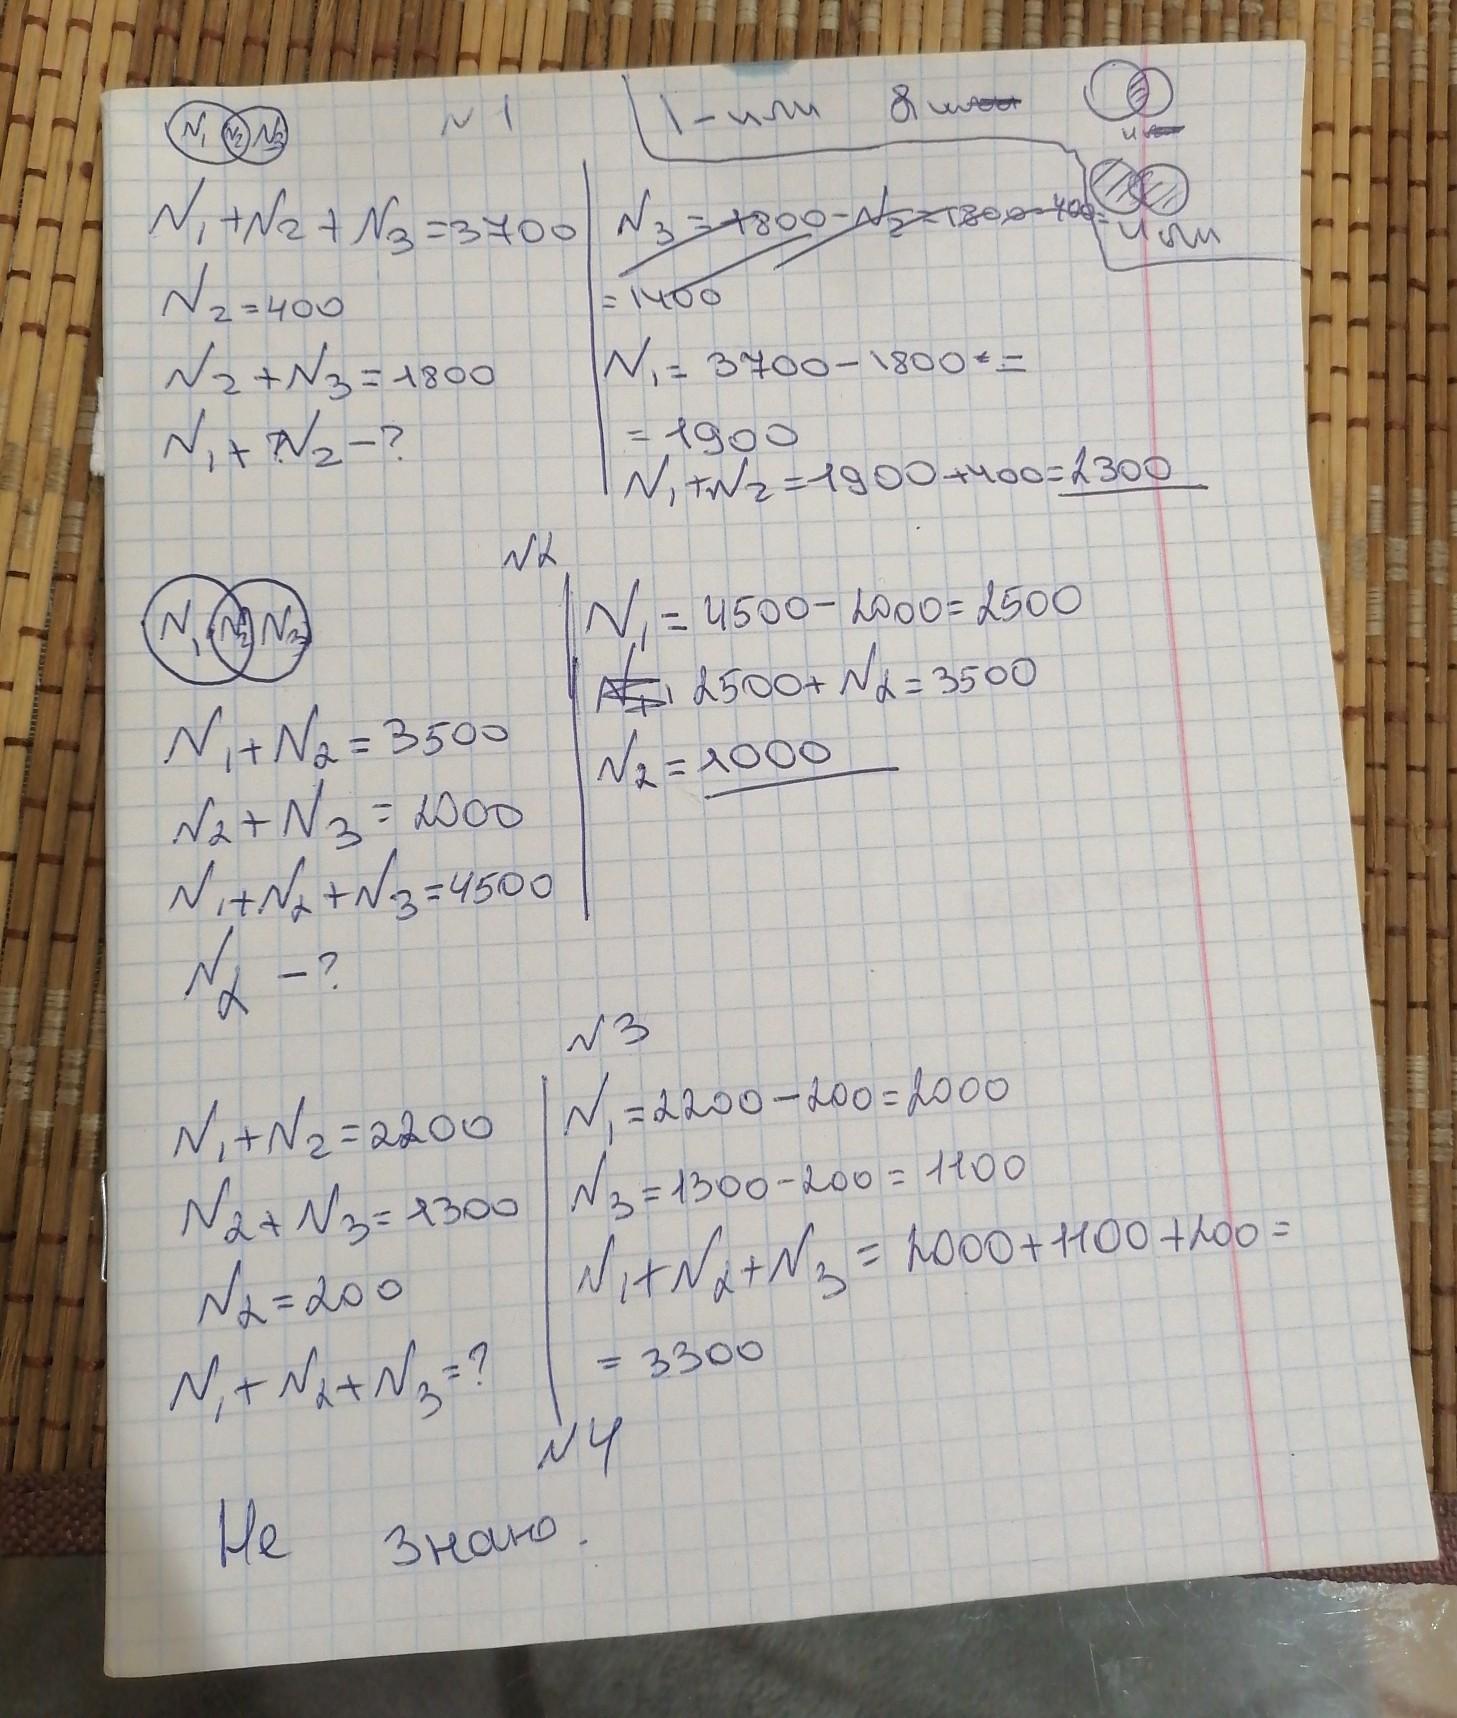 N1 N2 N3
№1
1-или & и
и
или
N1+N2+N3=3700
N2=400
N2+N3=1800
N1+N2-?
N3=1800-N2=1800-400=
=1400
N1=3700-1800=
=1900
N1+N2=1900+400=2300
№2
N1 N2 N3
N1+N2=3500
N2+N3=2000
N1+N2+N3=4500
N2-?
N1=4500-2000=2500
2500+N2=3500
N2=1000
№3
N1+N2=2200
N2+N3=1300
N2=200
N1+N2+N3=?
N1=2200-200=2000
N3=1300-200=1100
N1+N2+N3=2000+1100+200=
=3300
№4
Не знаю.